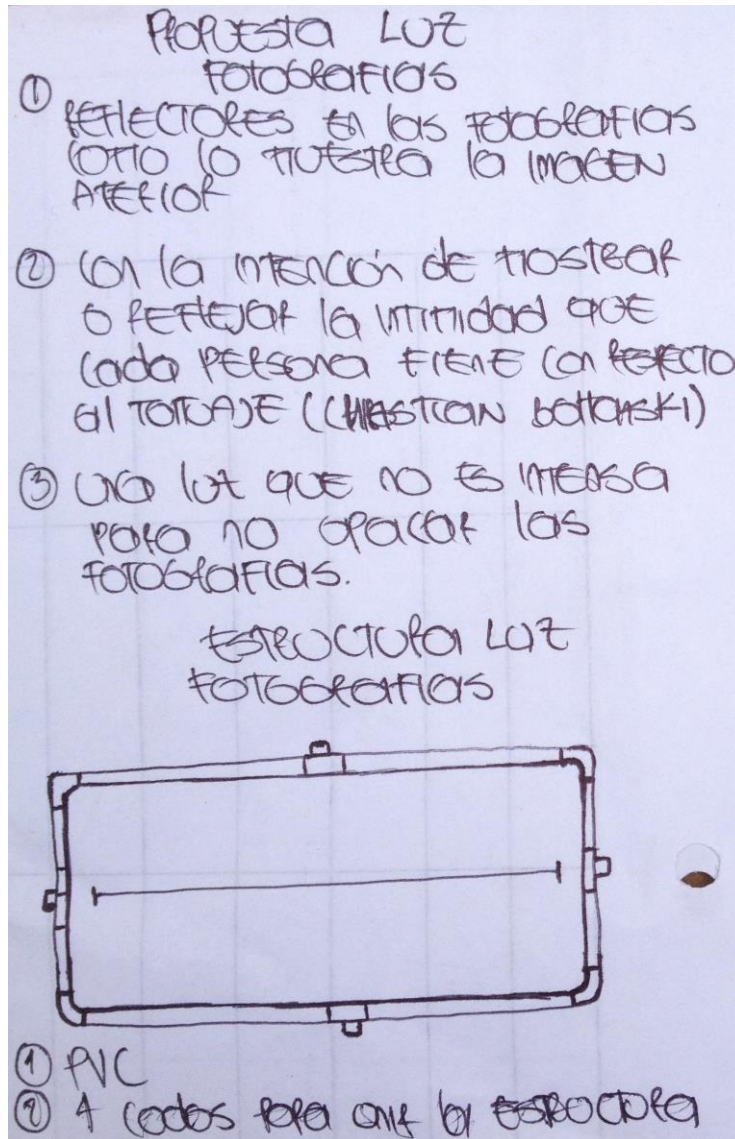 PROPUESTA LUZ
FOTOGRAFIAS
① REFLECTORES EN las FOTOGRAFIAS
COMO lO MUESTRA la IMAGEN
ATERIOR
② CON la INTENCIÓN dE MOSTRAR
O REFLEJAR la INTIMIDAD QUE
CADA PERSONA TIENE CON RESPECTO
al TATUAJE (CHRISTIAN BOLTANSKI)
③ UNA lUZ QUE NO ES INTENSA
PARA NO OPACAR las
FOTOGRAFIAS.
ESTRUCTURA LUZ
FOTOGRAFIAS
① PVC
② 4 CODOS PARA UNIR la ESTRUCTURA